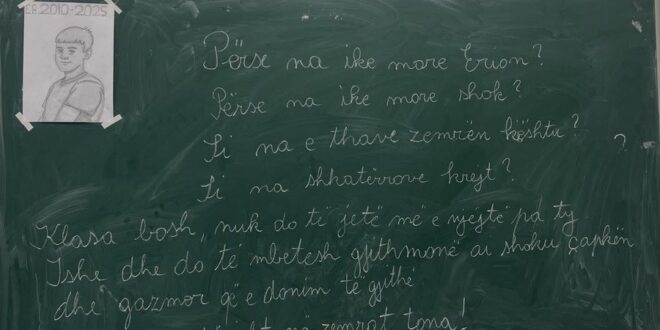 E.B. 2010-2025
Përse na ike more Erion?
Përse na ike more shok?
Si na e thave zemrën kështu?
?
Si na shkatërrove krejt?
Klasa bosh, nuk do të jetë më e njejtë pa ty
Ishe dhe do të mbetesh gjithmonë ai shoku çapkën
dhe gazmor që e donim të gjithë
në zemrat tona!